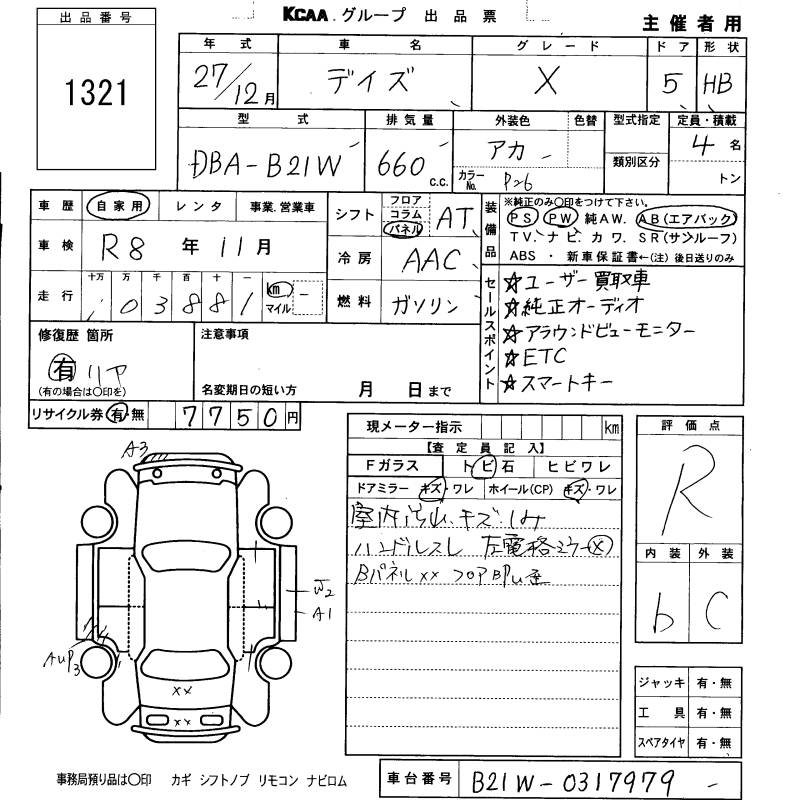 KCAA.グループ 出品票
主催者用
出品番号
1321
年式 車名 グレード ドア 形状
27/12月 デイズ X 5 HB
型式 排気量 外装色 色替 型式指定 定員・積載
DBA-B21W 660 c.c. アカ 類別区分 4名
カラーNo. トン
車歴 自家用 レンタ 事業.営業車
車検 R8年11月
走行 十万 万 千 百 十 一 km マイル
03881
シフト フロア コラム パネル AT
冷房 AAC
燃料 ガソリン
装備品
※純正のみ○印をつけて下さい。
PS PW 純AW. AB(エアバック)
TV. ナビ. カワ. SR(サンルーフ)
ABS ・ 新車保証書←(注) 後日送りのみ
セールスポイント
☆ユーザー買取車
☆純正オーディオ
☆アラウンドビューモニター
☆ETC
☆スマートキー
修復歴 箇所
有 リヤ
(有の場合は○印を)
注意事項
名変期日の短い方 月 日まで
リサイクル券 有・無 7750円
現メーター指示 km
【査定員記入】
Fガラス トビ石 ヒビワレ
ドアミラー キズ・ワレ ホイール(CP) キズ・ワレ
キズ
ハンドルスレ
Bパネルxx フロア
評価点
R
内装 外装
b C
ジャッキ 有・無
工具 有・無
スペアタイヤ 有・無
A3
W2
A1
AUP3
xx
xx
事務局預り品は○印 カギ シフトノブ リモコン ナビロム
車台番号 B21W-0317979